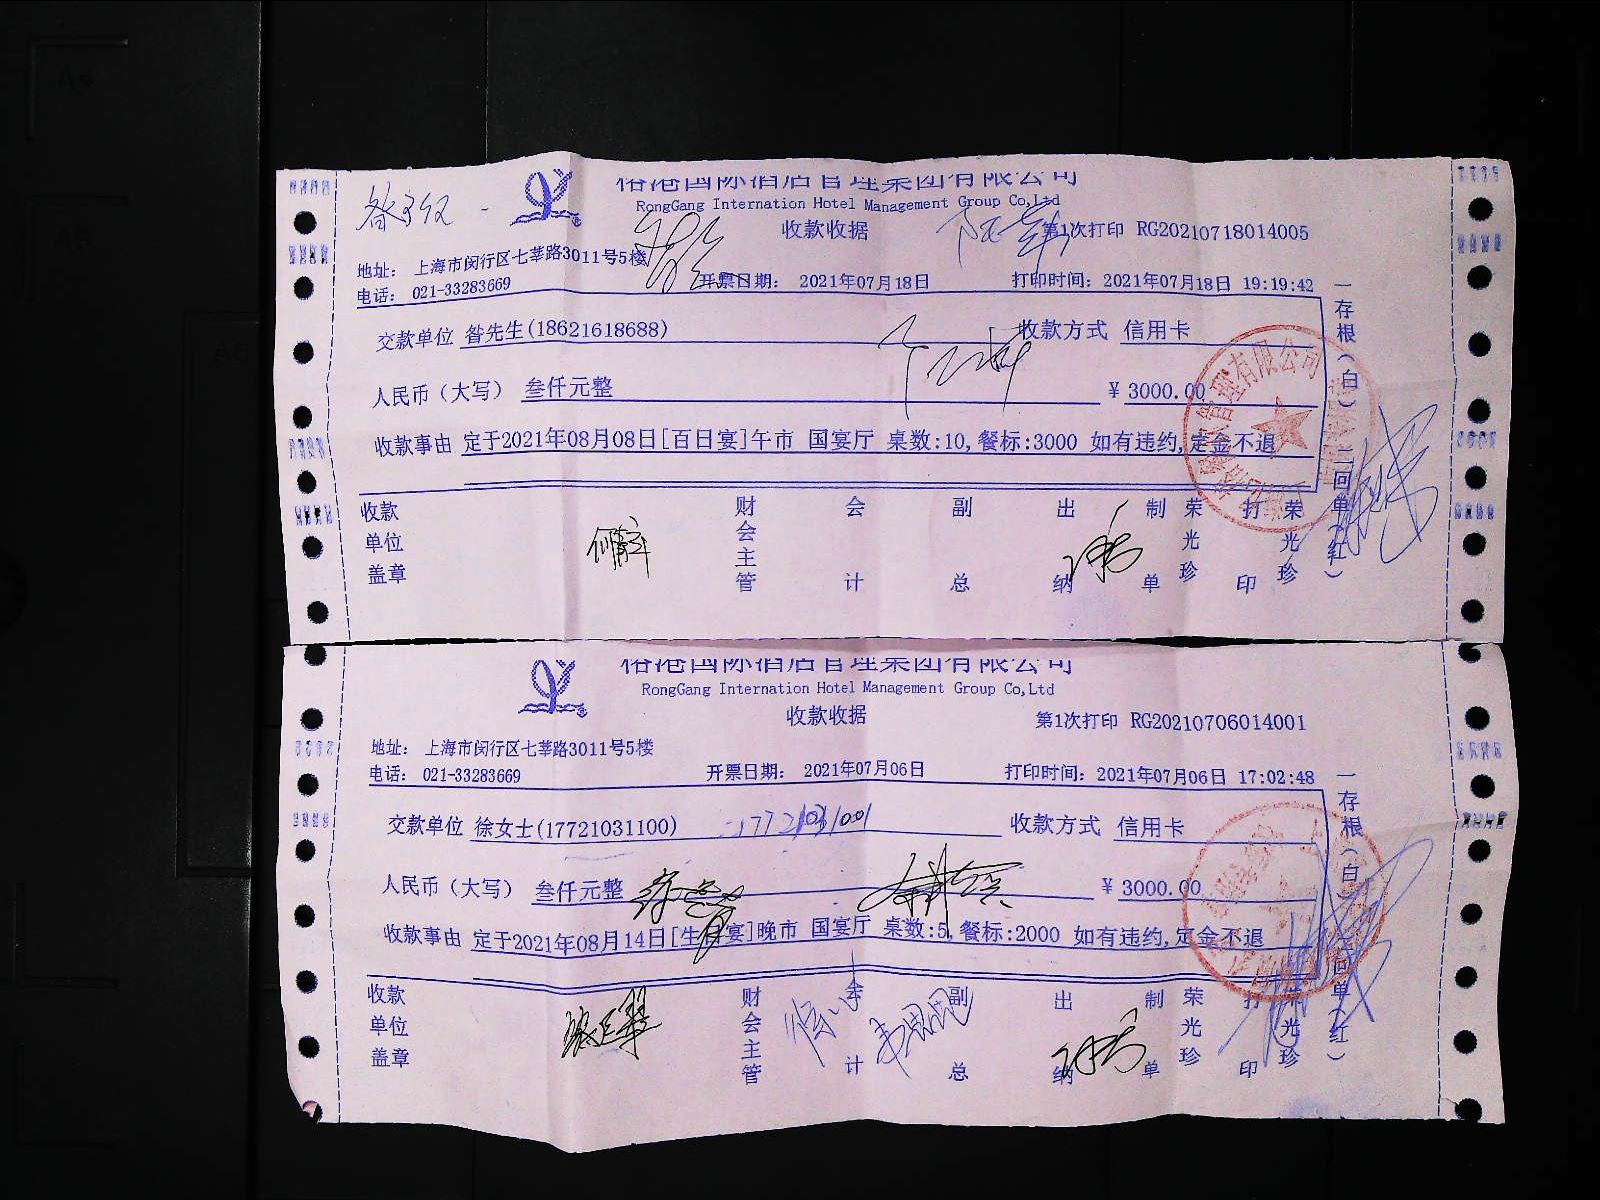 裕港国际酒店管理集团有限公司
RongGang Internation Hotel Management Group Co,Ltd
收款收据
第1次打印 RG20210718014005
地址： 上海市闵行区七莘路3011号5楼
电话： 021-33283669
开票日期： 2021年07月18日
打印时间：2021年07月18日 19:19:42
交款单位 昝先生(18621618688)
收款方式 信用卡
人民币（大写） 叁仟元整
¥ 3000.00
收款事由 定于2021年08月08日[百日宴]午市 国宴厅 桌数:10,餐标:3000 如有违约,定金不退
收款单位盖章
财会主管
会计
副总
出纳
制单
荣光珍
打印
荣光珍
一存根（白）二回单（红）
裕港国际酒店管理集团有限公司
RongGang Internation Hotel Management Group Co,Ltd
收款收据
第1次打印 RG20210706014001
地址： 上海市闵行区七莘路3011号5楼
电话： 021-33283669
开票日期： 2021年07月06日
打印时间：2021年07月06日 17:02:48
交款单位 徐女士(17721031100)
17721031001
收款方式 信用卡
人民币（大写） 叁仟元整
¥ 3000.00
收款事由 定于2021年08月14日[生日宴]晚市 国宴厅 桌数:5,餐标:2000 如有违约,定金不退
收款单位盖章
财会主管
会计
副总
出纳
制单
荣光珍
打印
荣光珍
一存根（白）二回单（红）